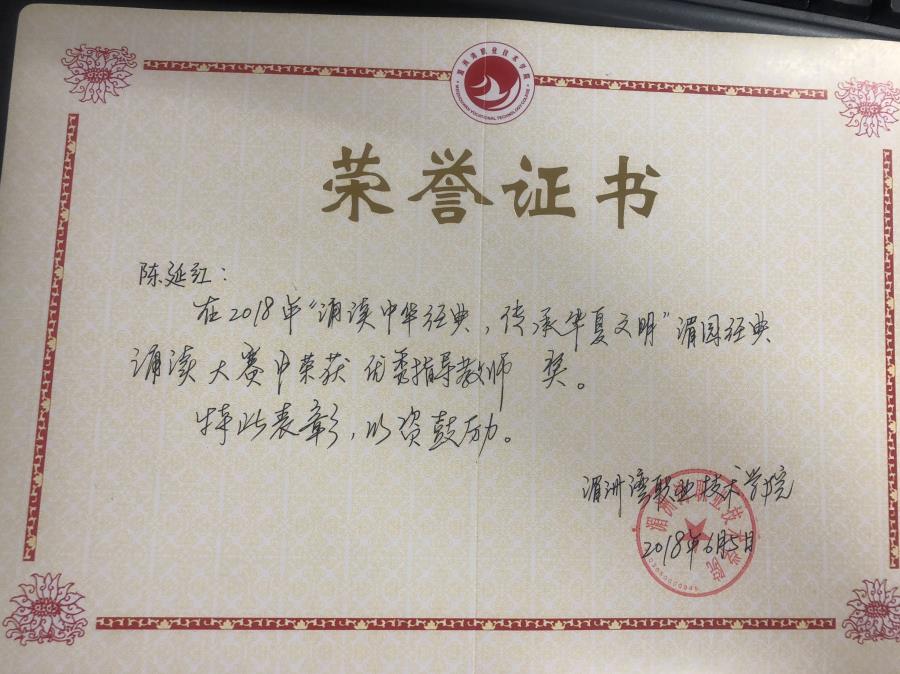 湄洲湾职业技术学院
MEIZHOUWAN VOCATIONAL TECHNOLOGY COLLEGE
荣誉证书
陈延红：
在2018年“诵读中华经典，传承华夏文明”湄园经典
诵读大赛中荣获 优秀指导教师 奖。
特此表彰，以资鼓励。
湄洲湾职业技术学院
2018年6月5日
湄洲湾职业技术学院